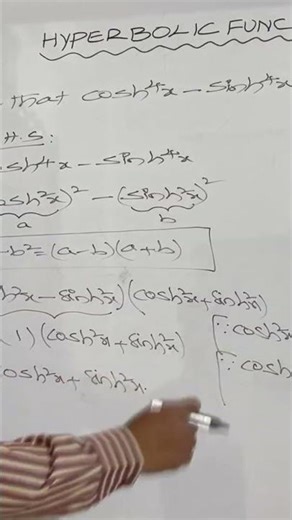 HYPERBOLIC FUNC
that cosh⁴x - sinh⁴x
H.S:
sh⁴x - sinh⁴x
sh²x)² - (sinh²x)²
a b
b² = (a-b)(a+b)
h²x - sinh²x)(cosh²x + sinh²x)
(1)(cosh²x + sinh²x) ∵ cosh²x
cosh²x + sinh²x. ∵ cosh